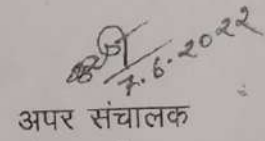 7.6.2022
अपर संचालक